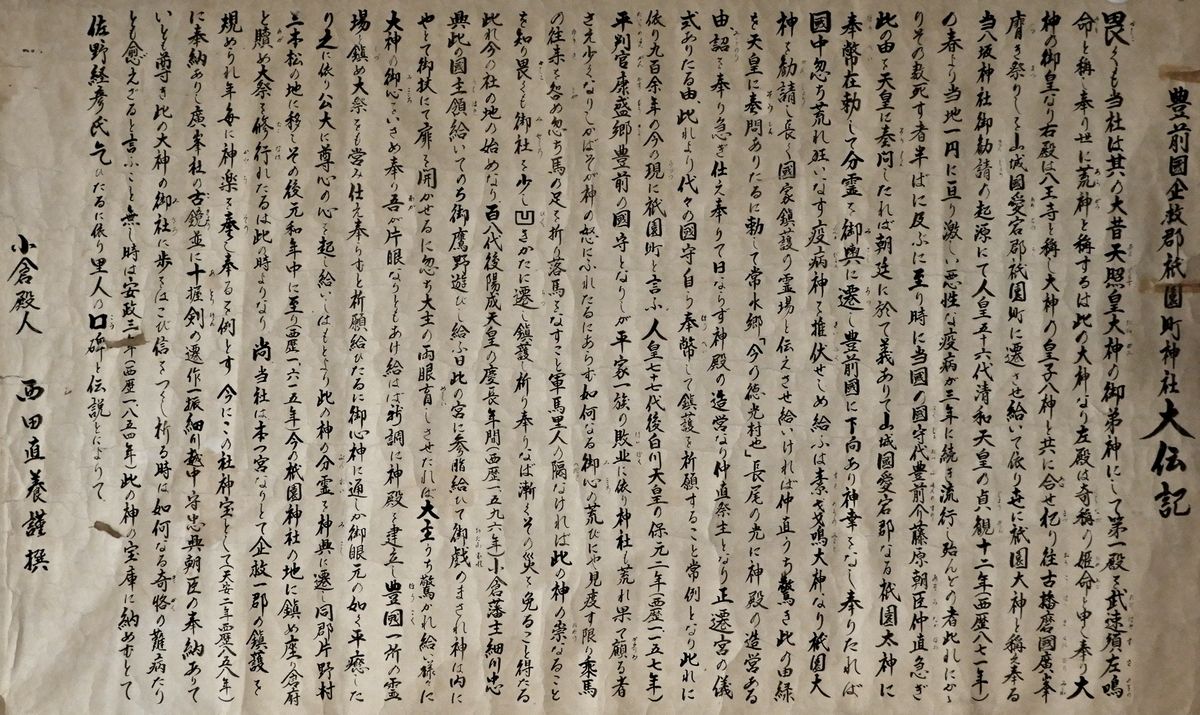 豊前國企救郡祇園町神社大伝記
畏くも当社は其の大昔天照皇大神の御弟神にして第一殿を武速須左鳴
命と稱し奉り世に荒神と稱するは此の大神なり左殿は奇稱の姫命と申し奉り大
神の御皇なり右殿は八王寺と稱し大神の皇子八神と共に合せ祀り往古播磨國廣峯
膺き祭りしを山城國愛宕郡祇園町に遷させ給いて依り世に祇園大神と稱え奉る
当八坂神社御勧請の起源にて人皇五十六代清和天皇の貞観十二年(西歴八七一年)
の春より当地一円に亘り激しい悪性な疫病が三年に続き流行し殆んどの者此れにかゝ
りその数死す者半ばに及ぶに至り時に当國の國守代豊前介藤原朝臣仲直急ぎ
此の由を天皇に奏問したれば朝廷に於て義ありて山城國愛宕郡なる祇園大神に
奉幣在勅して分霊を御輿に遷し豊前國に下向あり神幸をなし奉りたれば
國中忽ち荒れ狂いなす疫病神を推伏せしめ給ふは素戔嗚大神なり祇園大
神を勧請し長く國家鎮護の霊場と伝えさせ給いければ仲直うち驚き此の由緑
を天皇に奏問ありたるに勅して常水郷「今の徳光村也」長尾の光に神殿の造営ある
由、詔を奉り急ぎ仕え奉りて日ならず神殿の造営なり仲直祭主となり正遷宮の儀
式ありたる由、此れより代々の國守自ら奉幣して鎮護を祈願すること常例となり此れに
依り九百余年の今の現に祇園町と言ふ 人皇七十七代後白川天皇の保元二年(西歴一一五七年)
平判官康盛郷豊前の國守となりしが平家一族の敗业に依り神社も荒れ果て顧る者
さえ少くなりしかばそが神の怒にふれたるにあらず如何なる御心の荒びにや見度す限り乗馬
の往来を咎め忽ち馬の足を折り落馬をなすこと軍馬里人の隔なければ此の神の祟なること
を知り畏くも御社を少し凹きかたに遷し鎮護を祈り奉りなば漸くその災を免ること得たる
此れ今の社の地の始めなり 百八代後陽成天皇の慶長年間(西歴一五九六年)小倉藩主細川忠
興此の國主領給いてのち御鷹野遊びし給ふ日此の宮に参脂給ひて御戯のまさされ神は内に
やとて御杖にて扉を開かせるに忽ち大主の両眼盲しさせたれば大主うち驚かれ給い様々に
大神の御心をいさめ奉り吾が片眼なりともあけ給はば新調に神殿を建立し豊國一所の霊
場を鎮め大祭をも営み仕え奉りすと祈願給ひたるに御心神に通しか御眼元の如く平癒した
り之に依り公大に尊心の心を起し給いしはもとより此の神の分霊を神輿に遷し同郡片野村
三本松の地に移しその後元和年中に至り(西歴一六一五年)今の祇園神社の地に鎮め座り倉府
と贖め大祭を修行れたるは此の時よりなり 尚当社は本つ宮なりとて企救一郡の鎮護を
規められ年毎に神楽を奉こ奉るを例とす 今にこの社神宝として天安二年(西歴八五八年)
に奉納あり廣峯社の古鏡並に十握剣の遷作一振細川越中守忠興朝臣の奉納ありて
いとも尊き此の大神の御社に歩をはこび信をつくし祈る時は如何なる奇怪の難病たり
とも愈えざると言ふこと無し時は安政三年(西歴一八五四年)此の神の宝庫に納めむとて
佐野経彦氏乞ひたるに依り里人の口碑と伝説とによりて
小倉殿人 西田直養謹撰